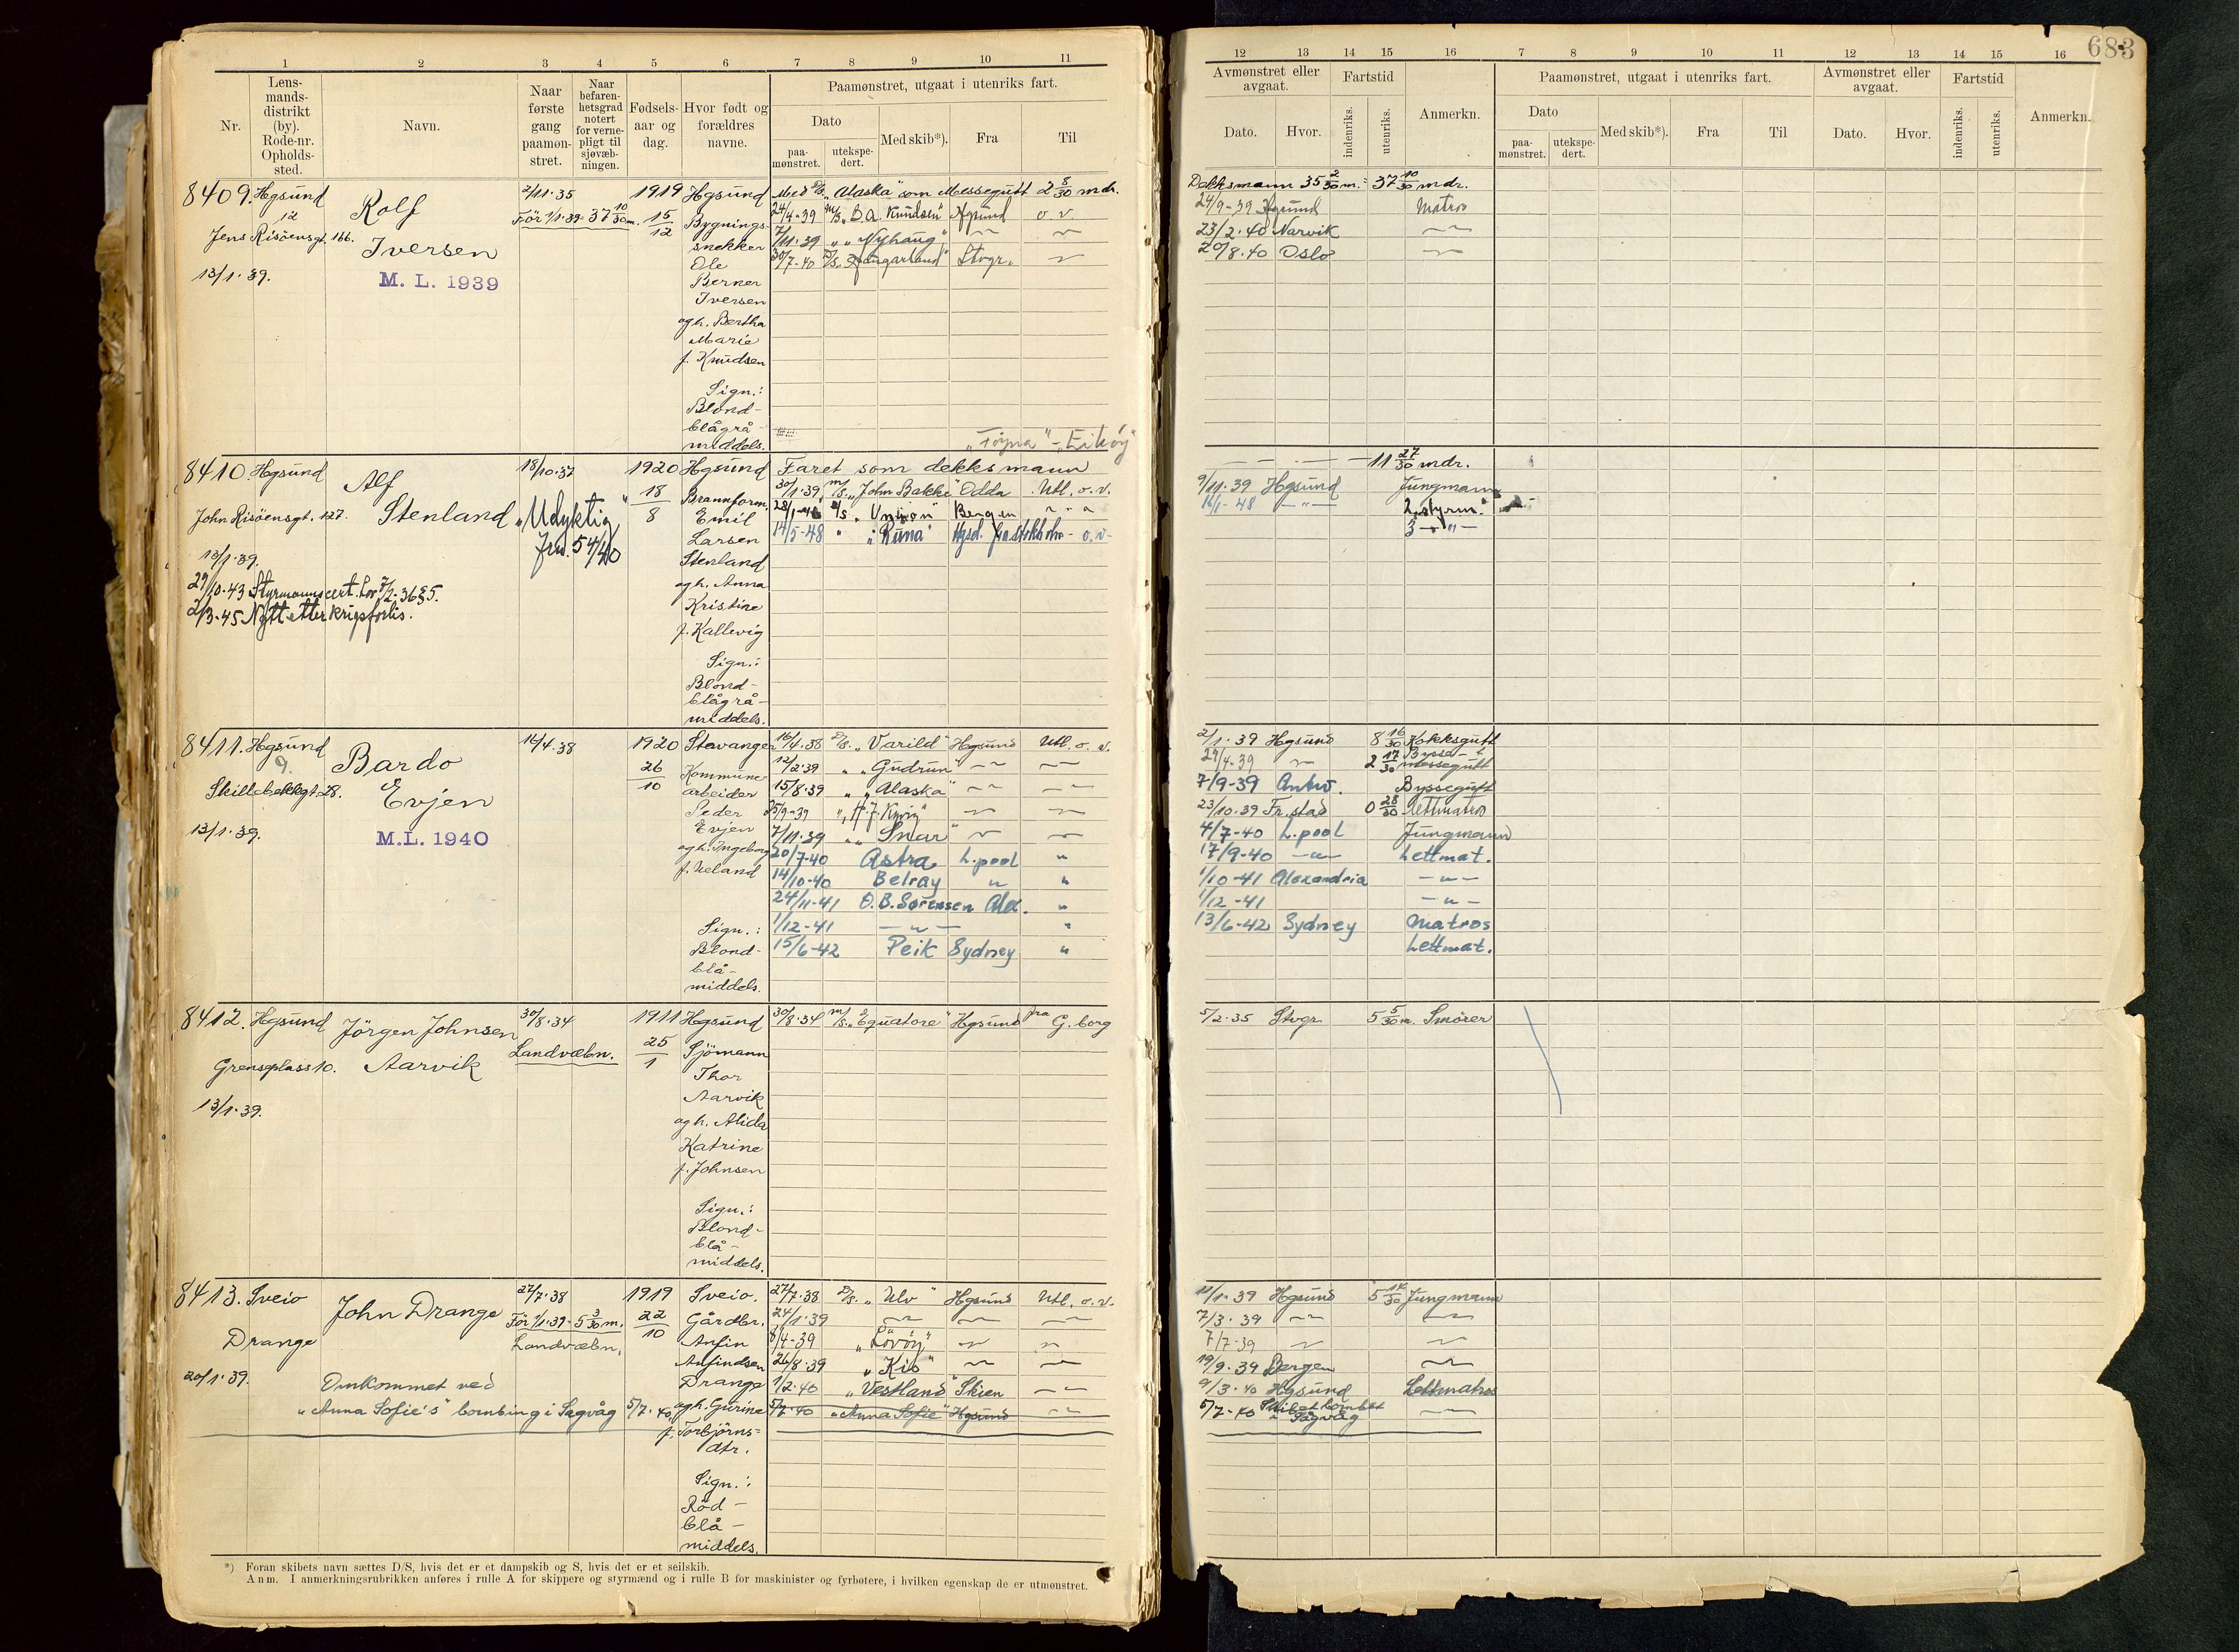 1 2 3 4 5 6 7 8 9 10 11
Nr.
Lens-
mands-
distrikt
(by).
Rode-nr.
Opholds-
sted.
Navn.
Naar
første
gang
paamøn-
stret.
Naar
befaren-
hetsgrad
notert
for verne-
pligt til
sjøvæb-
ningen.
Fødsels-
aar og
dag.
Hvor født og
forældres
navne.
Paamønstret, utgaat i utenriks fart.
Dato
paa-
mønstret.
utekspe-
dert.
Med skib*).
Fra
Til
8409. Hgsund
12
Jens Risöensgt. 166.
13/1.39.
Rolf
Iversen
M. L. 1939
2/11.35
För 1/1.39 - 37 10/30 m.
1919
15/12
Hgsund
Bygnings-
snekker
Ole
Berner
Iversen
og h. Bertha
Marie
f. Knudsen
Sign.:
Blond-
blågrå-
middels.
Med D/S. „Alaska" som Messegutt 2 8/30 mdr.
24/4-39 M/S. „B.A. Knudsen" Hgsund o. v.
7/11.39 „ „Nyhaug" — —
30/7-40 D/S. Stvgr. —
8410. Hgsund
John Risöensgt. 127.
13/1.39.
29/10-43 Styrmannscert. Lov 7/2-36 §5.
2/3-45 Nytt etter krigsforlis.
Alf
Stenland
18/10.37
„Udyktig"
Jrn. 54/40
1920
18/8
Hgsund
Brannform.
Emil
Larsen
Stenland
og h. Anna
Kristine
f. Kallevig
Sign.:
Blond-
blågrå-
middels.
Faret som dekksmann
30/1.39 M/S. „John Bakke" Odda Utl. o. v.
"Union" Bergen " "
14/5-48 " "Runa" Hgsd. fra Stokholm - o.v-
8411. Hgsund
9.
Skillebekkgt. 28.
13/1.39.
Bardo
Evjen
M.L. 1940
16/4.38
1920
26/10
Stavanger
Kommune-
arbeider
Peder
Evjen
og h. Ingeborg
f. Ueland
Sign.:
Blond-
blå-
middels.
16/4.38 D/S. „Varild" Hgsund Utl. o. v.
12/2.39 „ „Gudrun" — —
15/8.39 „ „Alaska" — —
25/9-39 —
7/11.39 „ „Snar" — —
20/7-40 Astra L.pool "
14/10-40 Belray " "
24/11-41 O.B. Sørensen Alex. "
1/12-41 — " — "
15/6-42 Peik Sydney "
8412. Hgsund
Grenseplass 10.
13/1.39.
Jörgen Johnsen
Aarvik
30/8.34
Landvæbn.
1911
25/1
Hgsund
Sjömann
Thor
Aarvik
og h. Alida
Katrine
f. Johnsen
Sign.:
Blond-
blå-
middels.
30/8.34 M/S. „Equatore" Hgsund fra G. borg
8413. Sveio
Drange
20/1.39.
John Drange
27/7.38
Før 1/1.39 - 5 3/30 m.
Landvæbn.
1919
22/10
Sveio.
Gårdbr.
Anfin
Anfindsen
Drange
og h. Gurine
f. Torbjörns-
dtr.
Sign.:
Röd-
blå-
middels.
Omkommet ved
„Anna Sofie's" bombing i Sagvåg 5/7.40.
27/7.38 D/S. „Ulv" Hgsund Utl. o. v.
24/1.39 — — —
8/4-39 „Lovöy" — —
26/8.39 „Kis" — —
1/2.40 „Vestland" Skien —
5/7.40 „Anna Sofie" Hgsund —
*) Foran skibets navn sættes D/S, hvis det er et dampskib og S, hvis det er et seilskib.
Anm. I anmerkningsrubrikken anføres i rulle A for skippere og styrmænd og i rulle B for maskinister og fyrbøtere, i hvilken egenskap de er utmønstret.
683
12 13 14 15 16 7 8 9 10 11 12 13 14 15 16
Avmønstret eller
avgaat.
Dato. Hvor.
Fartstid
indenriks. utenriks.
Anmerkn.
Paamønstret, utgaat i utenriks fart.
Dato
paa-
mønstret.
utekspe-
dert.
Med skib*). Fra Til
Avmønstret eller
avgaat.
Dato. Hvor.
Fartstid
indenriks. utenriks.
Anmerkn.
Dekksmann 35 2/30 m. = 37 10/30 mdr.
24/9-39 Hgsund Matros
23/2.40 Narvik —
20/8.40 Oslo —
— 11 27/30 mdr.
9/11.39 Hgsund Jungmann
16/1-48 — " — 2. styrm.
3 — " —
2/1.39 Hgsund 8 16/30 Kokksgutt
29/4-39 — 2 17/30 Bysse- messegutt
7/9-39 Antw. Byssegutt
23/10.39 Fr.stad 0 28/30 Lettmatros
4/7-40 L.pool Jungmann
17/9-40 — " — Lettmat.
1/10-41 Alexandria — " —
1/12-41 — " —
13/6-42 Sydney Matros
Lettmat.
5/2.35 Stvgr. 5 5/30 m. Smörer
11/1.39 Hgsund 5 14/30 Jungmann
7/3.39 — —
7/7-39 — —
19/9.39 Bergen —
9/3.40 Hgsund Lettmatros
5/7-40 Skibet bombet
i Sagvåg —